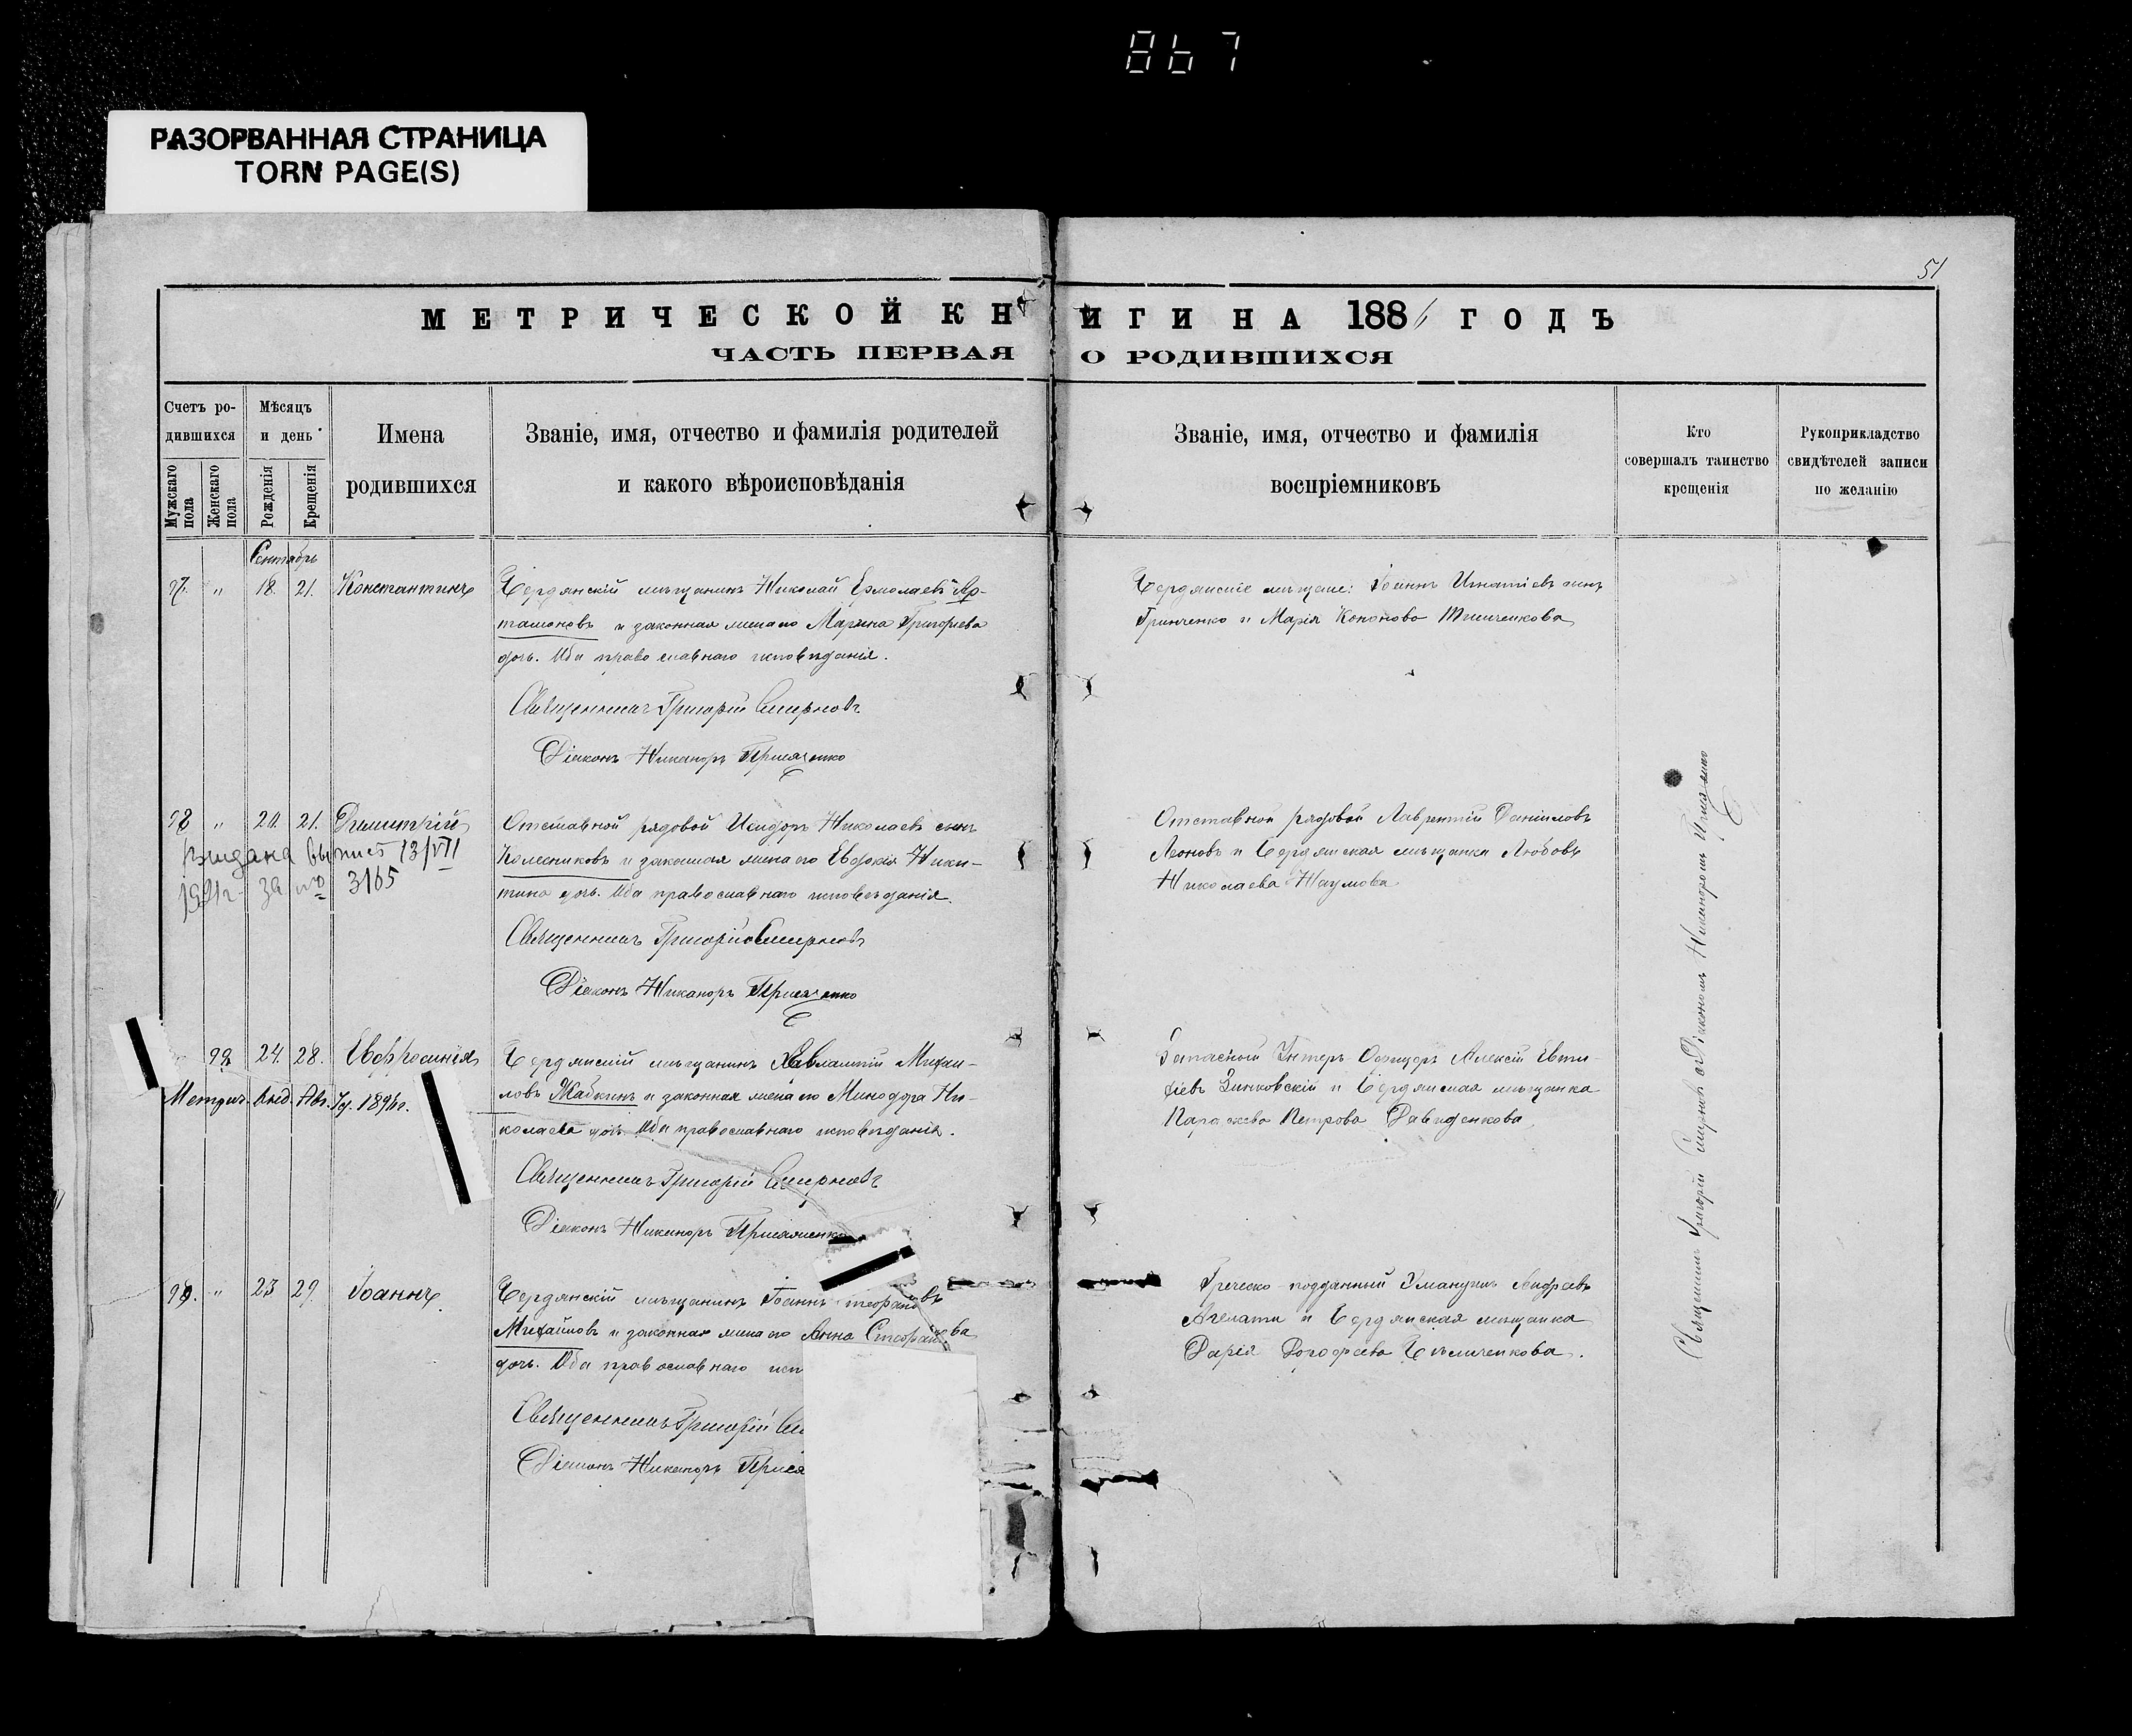 867
РАЗОРВАННАЯ СТРАНИЦА
TORN PAGE(S)
51
МЕТРИЧЕСКОЙ КНИГИ НА 1886 ГОДЪ
ЧАСТЬ ПЕРВАЯ О РОДИВШИХСЯ
Счетъ родившихся
Мужскаго пола
Женскаго пола
Мѣсяцъ и день
Рожденія
Крещенія
Имена родившихся
Званіе, имя, отчество и фамилія родителей
и какого вѣроисповѣданія
Званіе, имя, отчество и фамилія
воспріемниковъ
Кто
совершалъ таинство
крещенія
Рукоприкладство
свидѣтелей записи
по желанію
Сентябрь
97. " 18. 21. Константинъ
Бердянскій мѣщанинъ Николай Ермолаевъ Ар-
тамоновъ и законная жена его Марина Григорьева
дочь. Оба православнаго исповѣданія.
Священникъ Григорій Смирновъ
Діаконъ Никаноръ Присяженко
Бердянскіе мѣщане: Іоаннъ Игнатіевъ сынъ
Гринченко и Марія Кононова
98 " 20. 21. Димитрій
Выдана выпись 13/VII
за № 3165
Отставной рядовой Исидоръ Николаевъ сынъ
Колесниковъ и законная жена его Евдокія Ники-
тина дочь. Оба православнаго исповѣданія.
Священникъ Григорій Смирновъ
Діаконъ Никаноръ Присяженко
Отставной рядовой Лаврентій Даніиловъ
Леоновъ и Бердянская мѣщанка Любовь
Николаева Наумова
24. 28. Евфросинія
Метрич. выд. Авг. 1896г.
Бердянскій мѣщанинъ Михаи-
ловъ Жабкинъ и законная жена его Минодора Ни-
колаева дочь. Оба православнаго исповѣданія.
Священникъ Григорій Смирновъ
Діаконъ Никаноръ Присяженко
Запасный Унтеръ-Офицеръ Алексій Евти-
фіевъ Зинковскій и Бердянская мѣщанка
Параскева Петрова Давиденкова
99. " 23 29. Іоаннъ
Бердянскій мѣщанинъ Іоаннъ
Михайловъ и законная жена его Анна
дочь. Оба православнаго исп
Священникъ Григорій См
Діаконъ Никаноръ Прися
Греческо-подданный Умануилъ Андреевъ
Агелати и Бердянская мѣщанка
Дарія Дорофеева
Священникъ Григорій Смирновъ съ Діакономъ Никаноромъ Присяженко